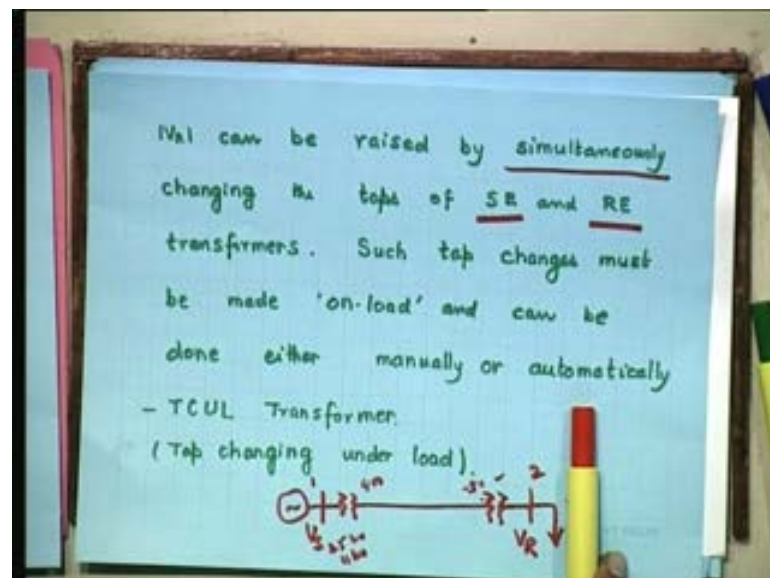 |VR| can be raised by simultaneously
changing the taps of SE and RE
transformers. Such tap changes must
be made 'on-load' and can be
done either manually or automatically
- TCUL Transformer.
(Tap changing under load).
1
2
~
VR